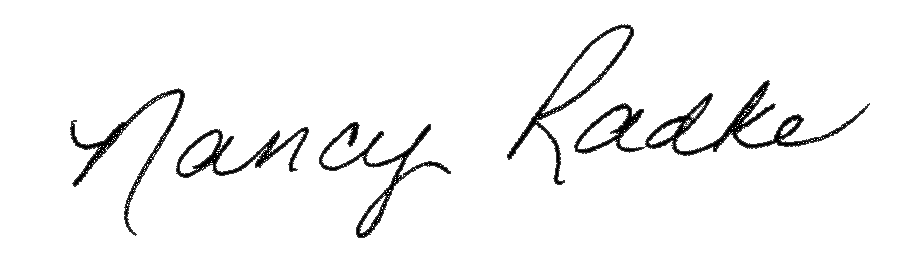 Nancy Radke